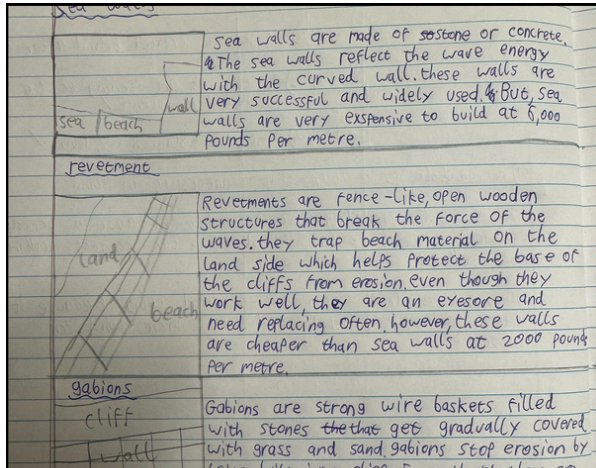 Sea walls
sea walls are made of so stone or concrete.
The sea walls reflect the wave energy
with the curved wall. these walls are
very successful and widely used. But, sea
walls are very exspensive to build at 6,000
pounds per metre.
sea / beach
wall
revetment
Revetments are fence-like, open wooden
structures that break the force of the
waves. they trap beach material on the
land side which helps protect the base of
the cliffs from erosion. even though they
work well, they are an eyesore and
need replacing often. however, these walls
are cheaper than sea walls at 2000 pounds
per metre.
land
beach
gabions
cliff
wall
Gabions are strong wire baskets filled
with stones the that get gradually covered
with grass and sand. gabions stop erosion by